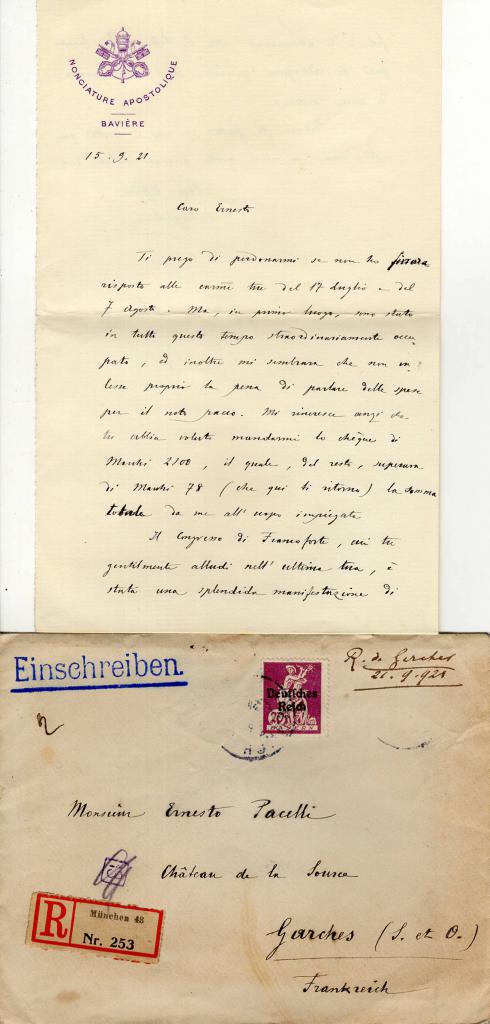 NONCIATURE APOSTOLIQUE
BAVIÈRE
15. 9. 21
Caro Ernesto
Ti prego di perdonarmi se non ho finora
risposto alle carme tue del 17 Luglio e del
7 Agosto. Ma, in primo luogo, sono stato
in tutto questo tempo straordinariamente occu
pato, ed inoltre mi sembrava che non va
lesse proprio la pena di parlare delle spese
per il noto pacco. Mi rincresce anzi che
tu abbia voluto mandarmi lo chèque di
Marchi 2100, il quale, del resto, superava
di Marchi 78 (che qui ti ritorno) la somma
totale da me all'uopo impiegata
Il Congresso di Francoforte, cui tu
gentilmente alludi nell'ultima tua, è
stata una splendida manifestazione di
Einschreiben.
R. de Garches
21-9-921
Deutsches
Reich
BAYERN
Monsieur Ernesto Pacelli
Château de la Source
R
München 48
Nr. 253
Garches (S. et O.)
Frankreich